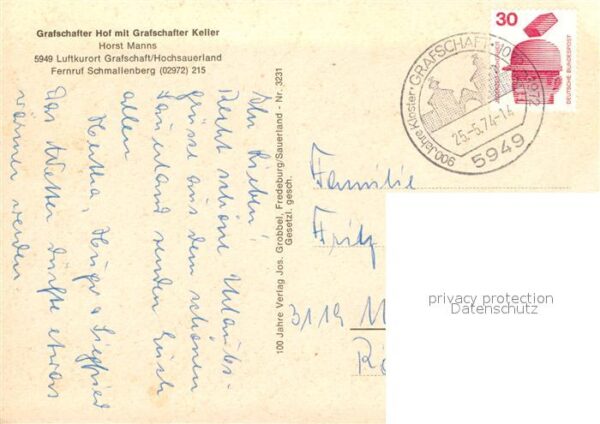 Grafschafter Hof mit Grafschafter Keller
Horst Manns
5949 Luftkurort Grafschaft/Hochsauerland
Fernruf Schmallenberg (02972) 215
Ihr Lieben!
Recht schöne Urlaubs-
grüsse aus dem schönen
Sauerland senden Euch
allen
Hertha, Hugo & Siegfried
Das Wetter dürfte etwas
wärmer werden
100 Jahre Verlag Jos. Grobbel, Fredeburg/Sauerland - Nr. 3231
Gesetzl. gesch.
30
DEUTSCHE BUNDESPOST
900 Jahre Kloster · GRAFSCHAFT · 1072
25.-5.74-14
5949
Familie
Fritz
3119
privacy protection
Datenschutz